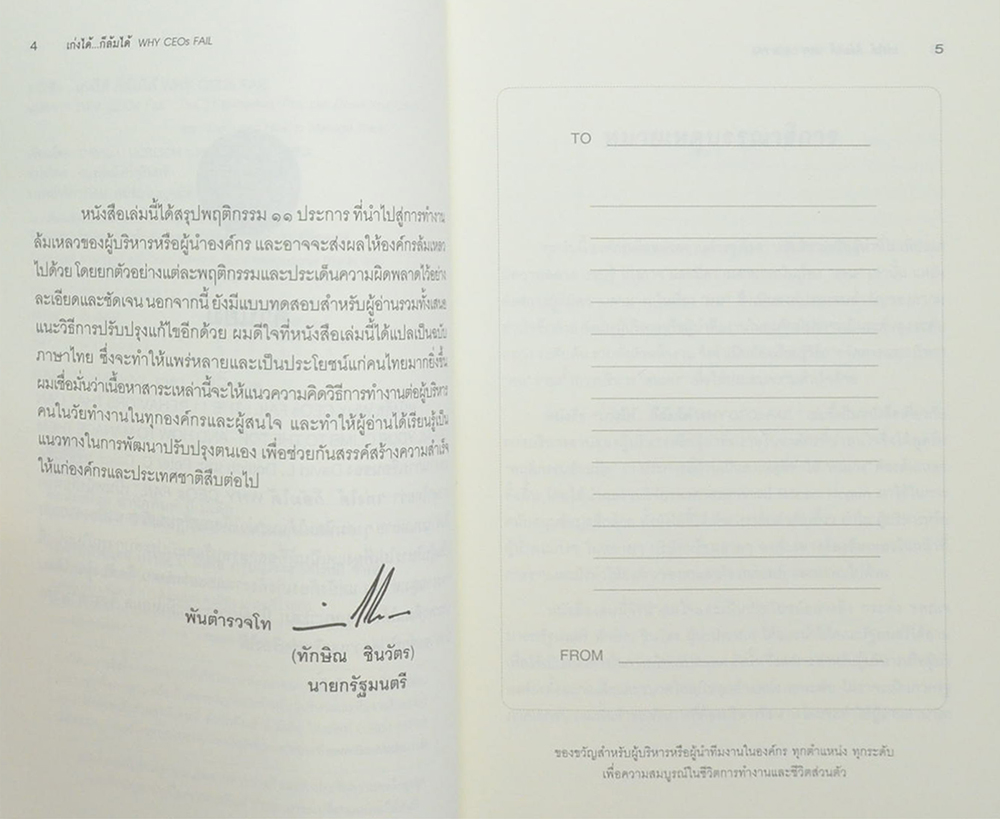 4 เก่งได้...ก็ล้มได้ WHY CEOs FAIL
หนังสือเล่มนี้ได้สรุปพฤติกรรม ๑๑ ประการ ที่นำไปสู่การทำงาน
ล้มเหลวของผู้บริหารหรือผู้นำองค์กร และอาจจะส่งผลให้องค์กรล้มเหลว
ไปด้วย โดยยกตัวอย่างแต่ละพฤติกรรมและประเด็นความผิดพลาดไว้อย่าง
ละเอียดและชัดเจน นอกจากนี้ ยังมีแบบทดสอบสำหรับผู้อ่านรวมทั้งเสนอ
แนะวิธีการปรับปรุงแก้ไขอีกด้วย ผมดีใจที่หนังสือเล่มนี้ได้แปลเป็นฉบับ
ภาษาไทย ซึ่งจะทำให้แพร่หลายและเป็นประโยชน์แก่คนไทยมากยิ่งขึ้น
ผมเชื่อมั่นว่าเนื้อหาสาระเหล่านี้จะให้แนวความคิดวิธีการทำงานต่อผู้บริหาร
คนในวัยทำงานในทุกองค์กรและผู้สนใจ และทำให้ผู้อ่านได้เรียนรู้เป็น
แนวทางในการพัฒนาปรับปรุงตนเอง เพื่อช่วยกันสรรค์สร้างความสำเร็จ
ให้แก่องค์กรและประเทศชาติสืบต่อไป
พันตำรวจโท
(ทักษิณ ชินวัตร)
นายกรัฐมนตรี
5
TO
FROM
ของขวัญสำหรับผู้บริหารหรือผู้นำทีมงานในองค์กร ทุกตำแหน่ง ทุกระดับ
เพื่อความสมบูรณ์ในชีวิตการทำงานและชีวิตส่วนตัว